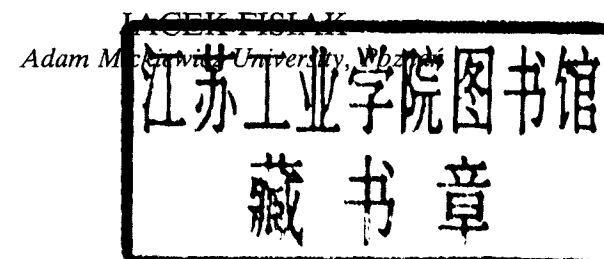 JACEK FISIAK
Adam Mickiewicz University, Poznań
江苏工业学院图书馆
藏书章